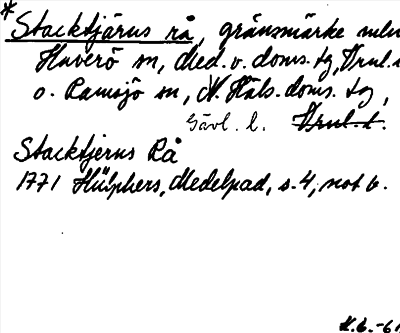 *Stacktjärns rå, gränsmärke mln
Haverö sn, Med. v. doms. tg, Vnl. l
o. Ramsjö sn, N. Häls. doms. tg,
Gävl. l. Vnl. l.
Stacktjerns Rå
1771 Hülphers, Medelpad, s. 4, not b.